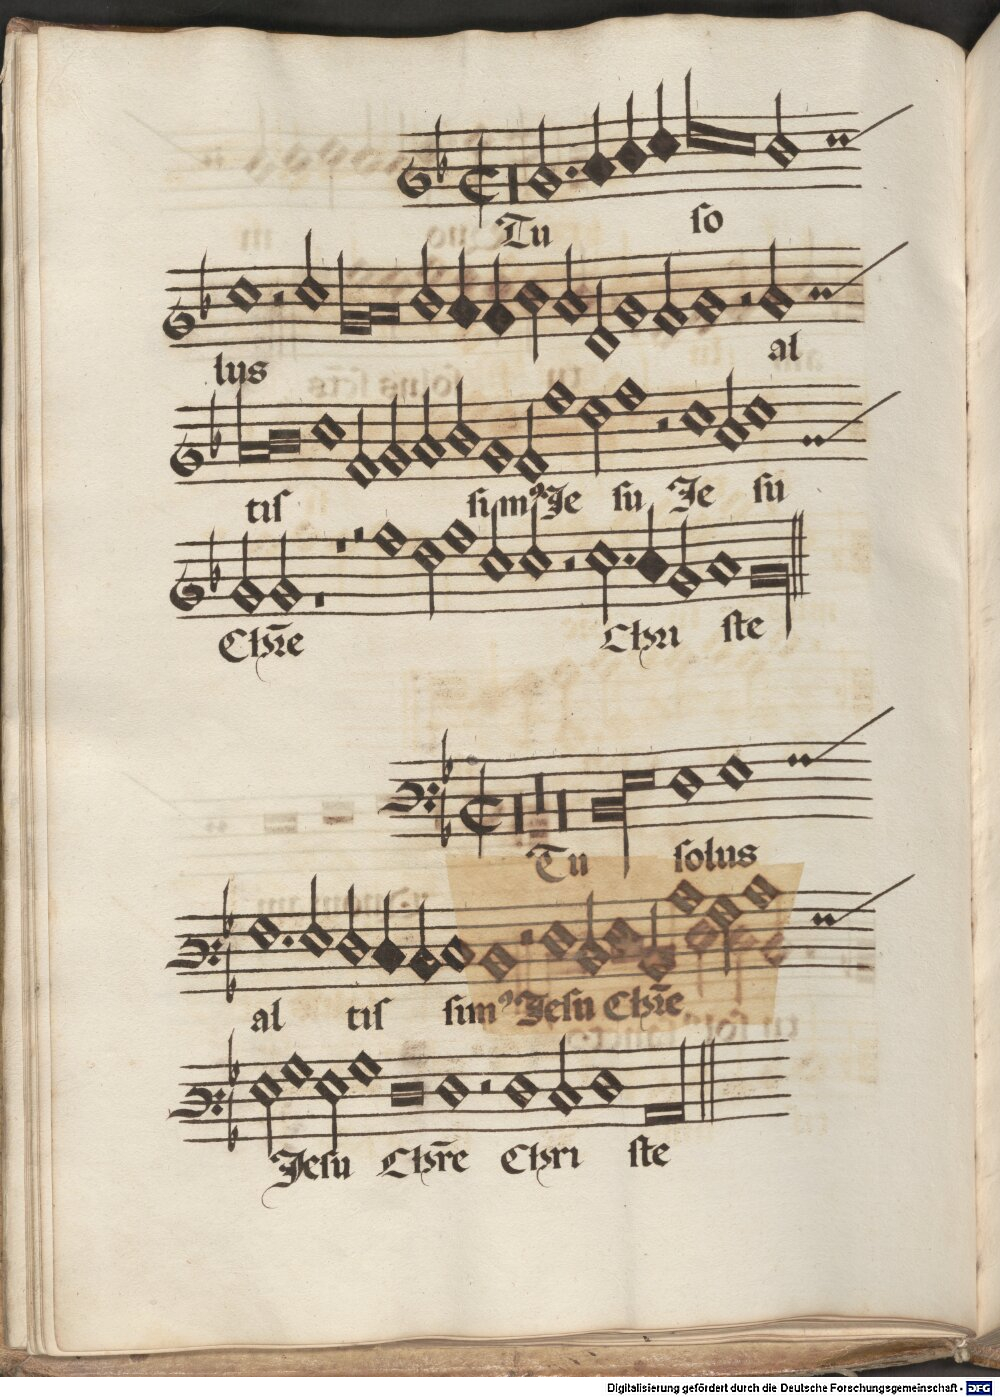 Tu so
lus al
tis simꝰ Je su Je su
Chr̄e Chri ste
Tu solus
al tis simꝰ Jesu Chr̄e
Jesu Chr̄e Chri ste
Digitalisierung gefördert durch die Deutsche Forschungsgemeinschaft - DFG